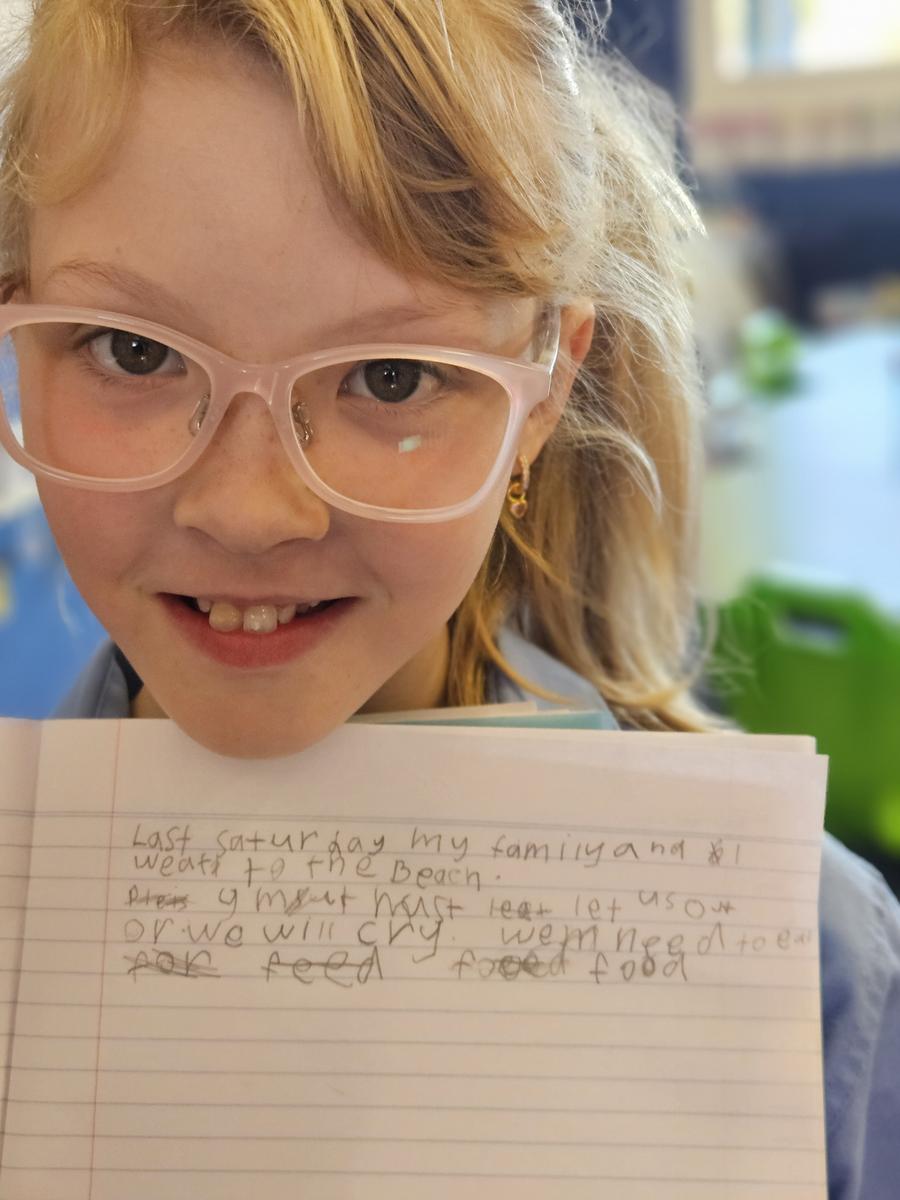 Last saturday my family and I
weats to the Beach.
y must let us out
or we will cry. we need to eat
for feed food food